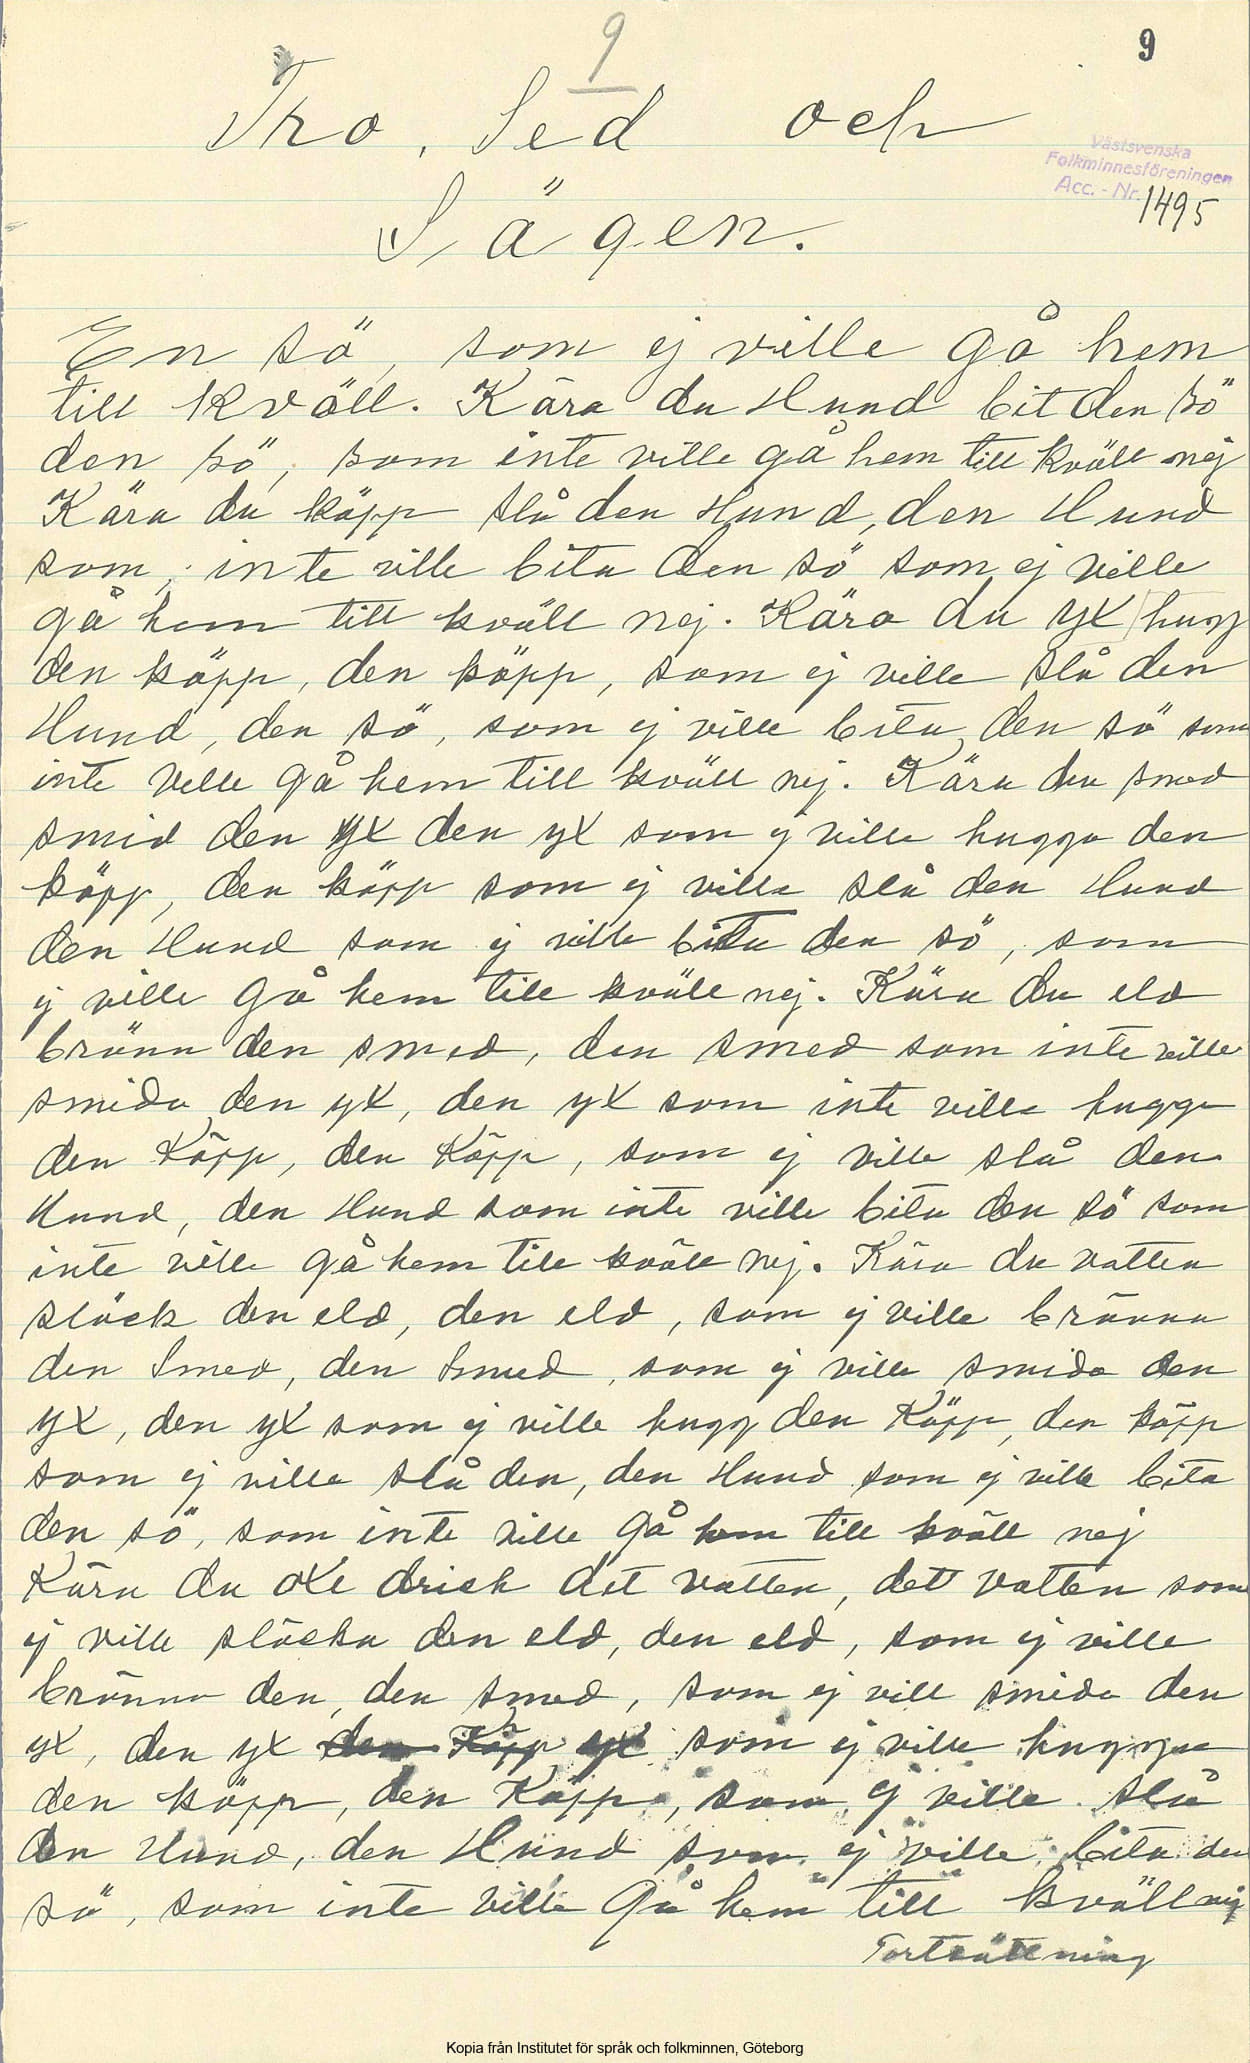 9
9
Tro, Sed och
Västsvenska
Folkminnesföreningen
Acc. - Nr. 1495
Sägen.
En sö, som ej ville gå hem
till kväll. Kära du Hund bit den sö
den sö, som inte ville gå hem till kväll nej
Kära du käpp slå den Hund, den Hund
som, inte ville bita den sö som ej ville
gå hem till kväll nej. Kära du yx hugg
den käpp, den käpp, som ej ville slå den
Hund, den sö, som ej ville bita, den sö som
inte ville gå hem till kväll nej. Kära du smed
smid den yx den yx som ej ville hugga den
käpp, den käpp som ej ville slå den Hund
den Hund som ej ville bita den sö, som
ej ville gå hem till kväll nej. Kära du eld
bränn den smed, den smed som inte ville
smida den yx, den yx som inte ville hugga
den Käpp, den Käpp, som ej ville slå den
Hund, den Hund som inte ville bita den sö som
inte ville gå hem till kväll nej. Kära du vatten
släck den eld, den eld, som ej ville bränna
den Smed, den Smed, som ej ville smida den
yx, den yx som ej ville hugg den Käpp, den käpp
som ej ville slå den, den Hund som ej ville bita
den sö, som inte ville gå hem till kväll nej
Kära du oxe drick det vatten, det vatten som
ej ville släcka den eld, den eld, som ej ville
bränna den, den smed, som ej vill smida den
yx, den yx den Käpp yx som ej ville hugga
den käpp, den Käpp, som ej ville slå
den Hund, den Hund som ej ville bita den
sö, som inte ville gå hem till kväll nej
Fortsättning
Kopia från Institutet för språk och folkminnen, Göteborg